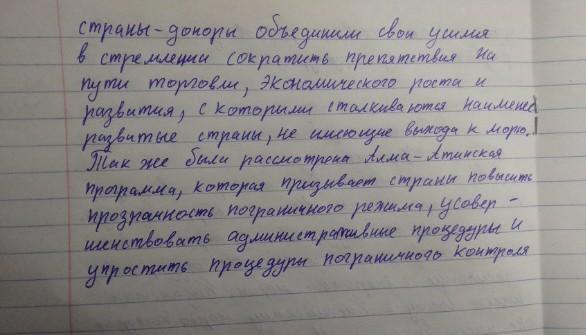 страны-доноры объединили свои усилия
в стремлении сократить препятствия на
пути торговли, экономического роста и
развития, с которыми сталкиваются наименее
развитые страны, не имеющие выхода к морю.
Так же были рассмотрена Алма-Атинская
программа, которая призывает страны повысить
прозрачность пограничного режима, усовер-
шенствовать административные процедуры и
упростить процедуры пограничного контроля